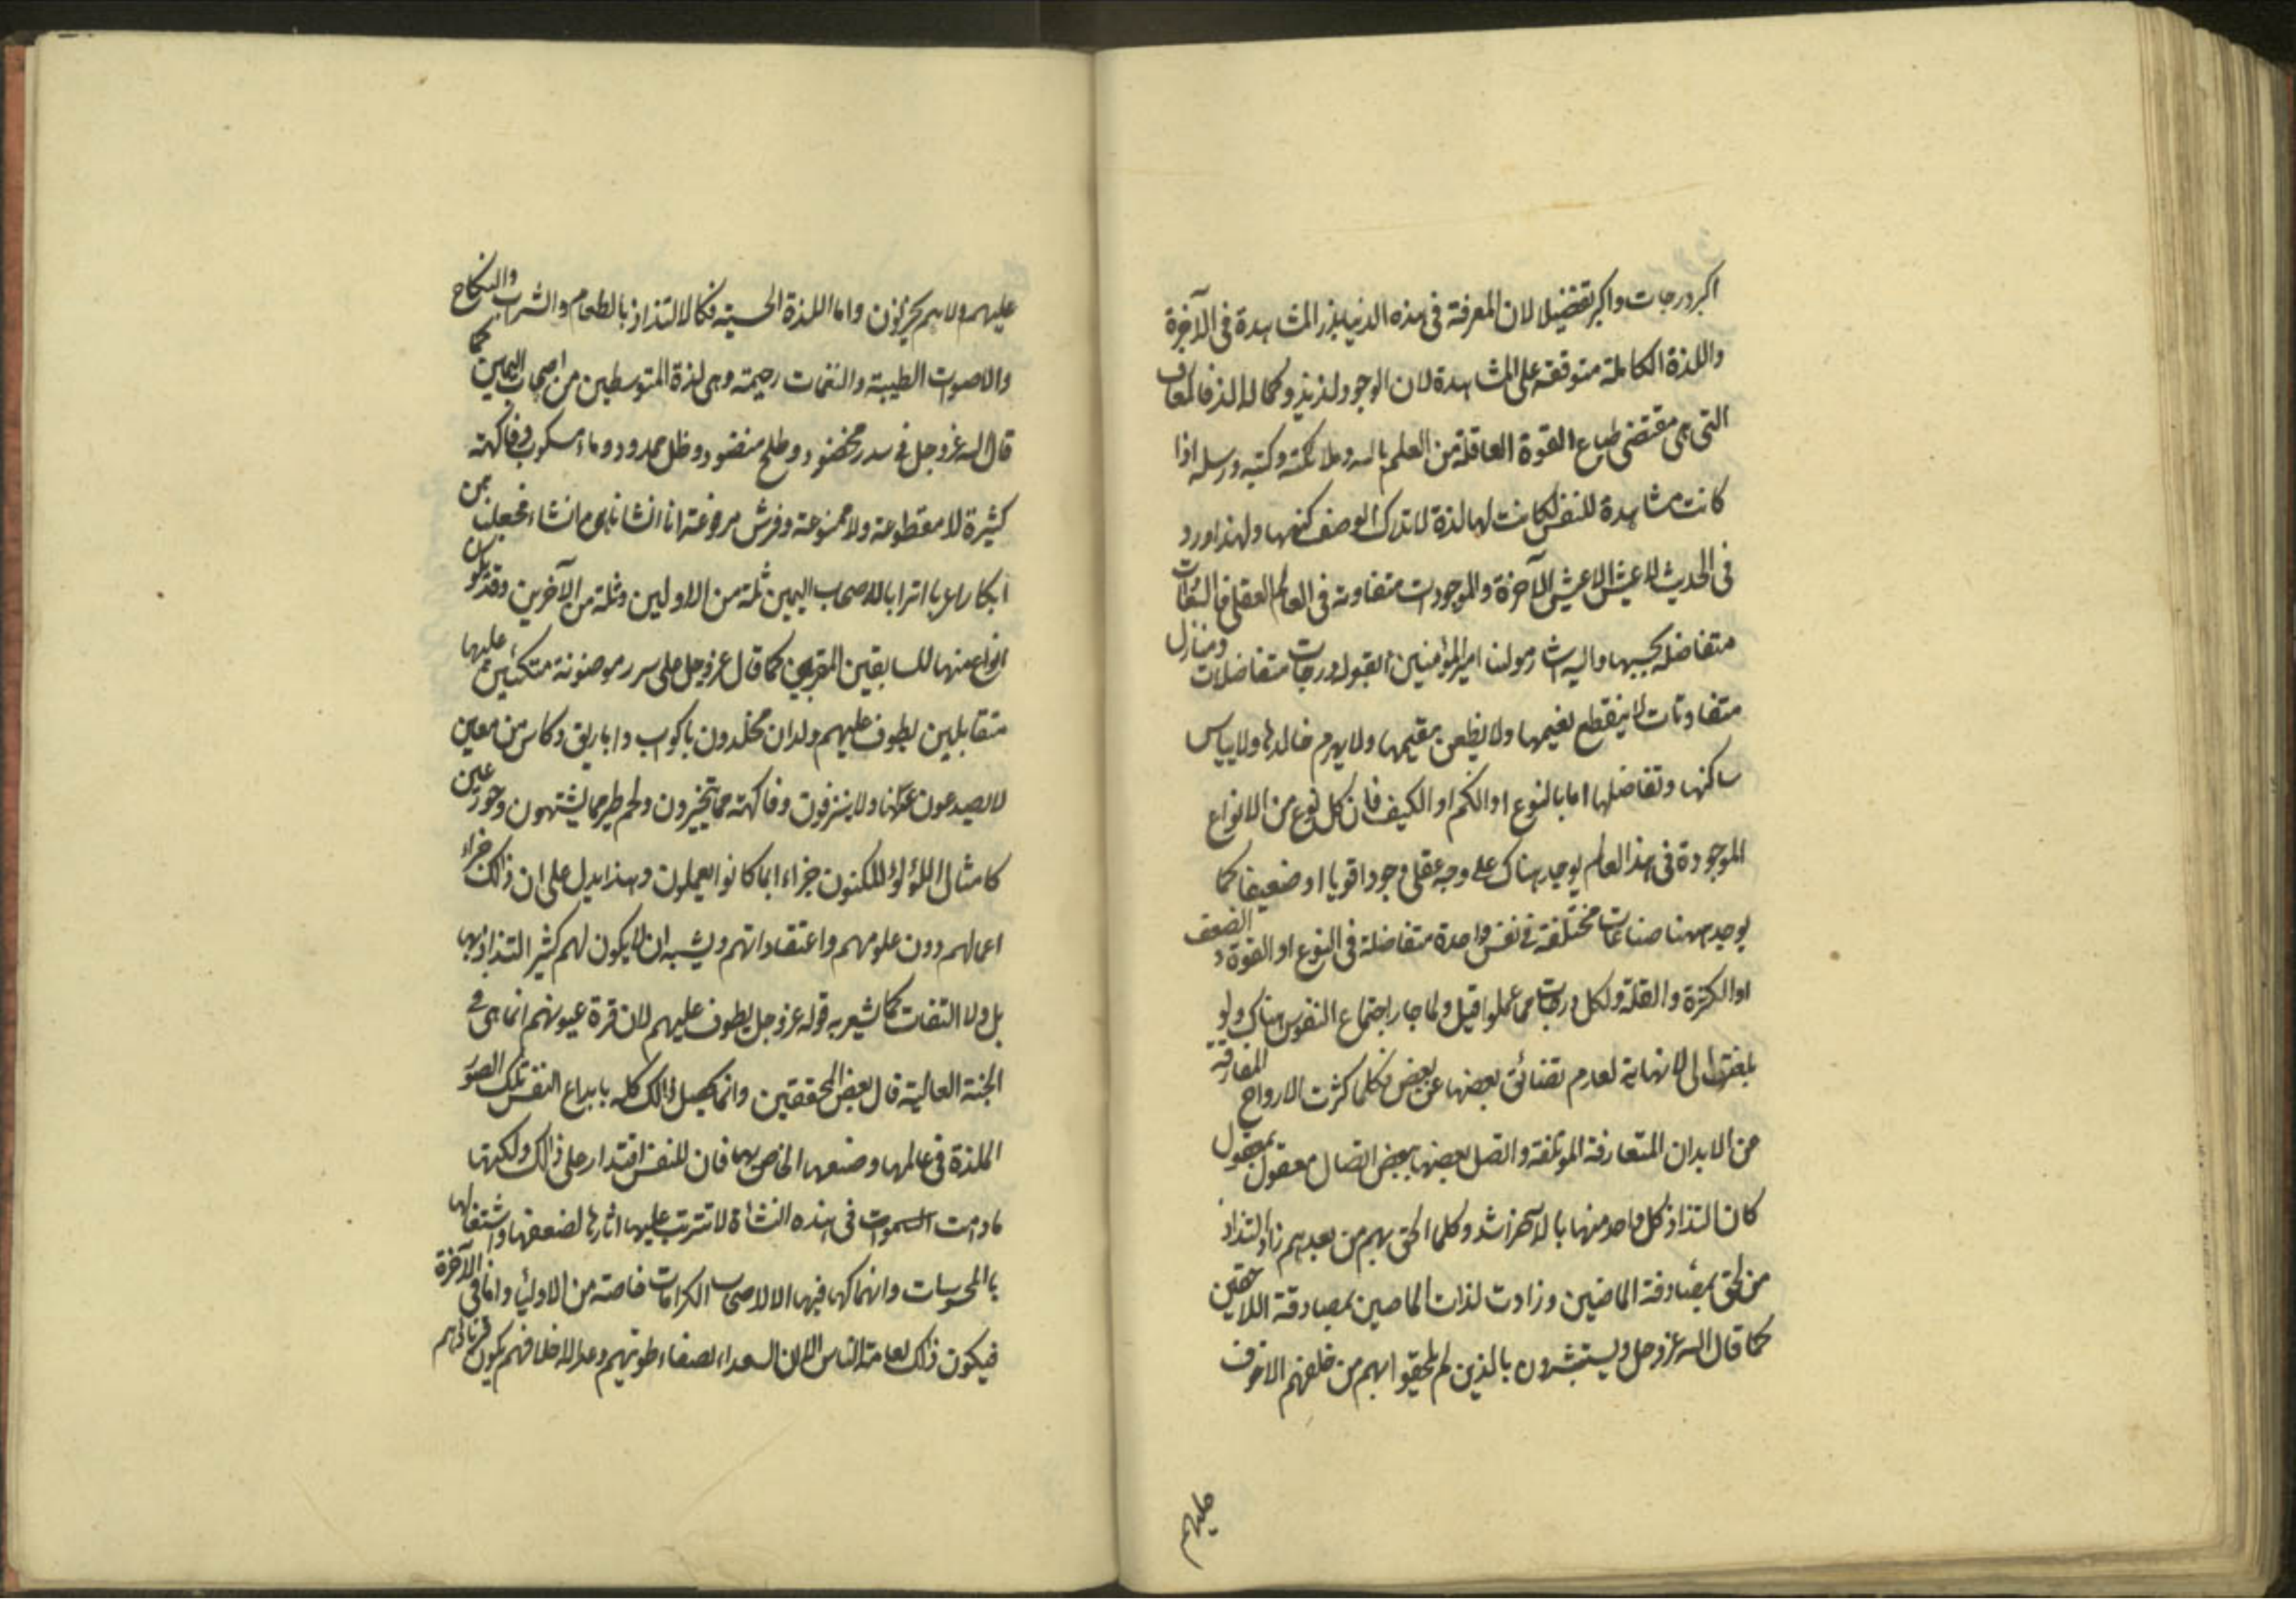 اكبر درجات واكبر تفضيلا لان المعرفة فى هذه الدنيا بذر المشاهدة فى الآخرة
واللذة الكاملة متوقفة على المشاهدة لان الوجود لذيذ وكماله الذ فالمعارف
التى هى مقتضى طباع القوة العاقلة من العلم بالله وملائكته وكتبه ورسله اذا
كانت مشاهدة للنفس كانت لها لذة لا تدرك الوصف كنهها ولهذا ورد
فى الحديث لا عيش الا عيش الآخرة والموجودات متفاوته فى العالم العقلى فالسعادات
متفاضلة بحسبها واليه اشار مولنا امير المؤمنين بقوله درجات متفاضلات ومنازل
متفاوتات لا ينقطع نعيمها ولا يظعن مقيمها ولا يهرم خالدها ولا يباس
ساكنها وتفاضلها اما بالنوع او الكم او الكيف فان كل نوع من الانواع
الموجودة فى هذا العالم يوجد هناك على وجه عقلى وجودا قويا او ضعيفا كما
يوجد ههنا صناعات مختلفة فى نفس واحدة متفاضلة فى النوع او القوة والضعف
او الكثرة والقلة ولكل درجات مما عملوا قيل ولما جاز اجتماع النفوس هناك ولو
بلغت الى لا نهاية لعدم تضائق بعضها عن بعض فكلما كثرت الارواح المفارقة
من الابدان المتعارفة الموتلفة واتصل بعضها ببعض اتصال معقول بمعقول
كان التذاذ كل واحد منها بالآخر اشد وكلما لحق بهم من بعدهم زاد التذاذ
من لحق بمصادفة الماضين وزادت لذات الماضين بمصادفة اللاحقين
كما قال الله عز وجل ويستبشرون بالذين لم يلحقوا بهم من خلفهم الا خوف
عليهم
عليهم ولا هم يحزنون واما اللذة الحسية فكالالتذاذ بالطعام والشراب والنكاح
والاصوت الطيبة والنغمات رحيمة وهى لذة المتوسطين من اصحاب اليمين كما
قال الله عز وجل فى سدر مخضود وطلح منضود وظل ممدود وماء مسكوب وفاكهة
كثيرة لا مقطوعة ولا ممنوعة وفرش مرفوعة انا انشاناهن انشاء فجعلناهن
ابكارا عربا اترابا لاصحاب اليمين ثلة من الاولين وثلة من الآخرين وقد يكون
انواع منها للسابقين المقربين كما قال عز وجل على سرر موضونة متكئين عليها
متقابلين يطوف عليهم ولدان مخلدون باكواب واباريق وكاس من معين
لا يصدعون عنها ولا ينزفون وفاكهة مما يتخيرون ولحم طير مما يشتهون وحور عين
كامثال اللؤلؤ المكنون جزاء بما كانوا يعملون وهذا يدل على ان ذالك جزاء
اعمالهم دون علومهم واعتقاداتهم ويشبه ان لا يكون لهم كثير التذاذ بها
بل ولا التفات كما يشعر به قوله عز وجل يطوف عليهم لان قرة عيونهم انما هى فى
الجنة العالية قال بعض المحققين وانما يحصل ذالك كله بابداع النفس تلك الصور
الملذة فى عالمها وصقعها الخاص بها فان للنفس اقتدار على ذالك ولكنها
مادامت السموات فى هذه النشاة لا تترتب عليها اثارها لضعفها واشتغالها
بالمحسوسات وانهماكها فيها الا لاصحاب الكرامات خاصة من الاولياء واما فى الآخرة
فيكون ذالك لعامة الناس الا ان السعداء لصفاء طويتهم وعدالة اخلاقهم يكون قرناؤهم